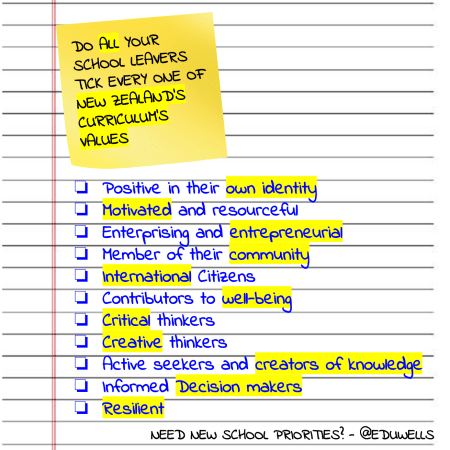 DO ALL YOUR
SCHOOL LEAVERS
TICK EVERY ONE OF
NEW ZEALAND'S
CURRICULUM'S
VALUES
Positive in their own identity
Motivated and resourceful
Enterprising and entrepreneurial
Member of their community
International Citizens
Contributors to well-being
Critical thinkers
Creative thinkers
Active seekers and creators of knowledge
Informed Decision makers
Resilient
NEED NEW SCHOOL PRIORITIES? - @EDUWELLS